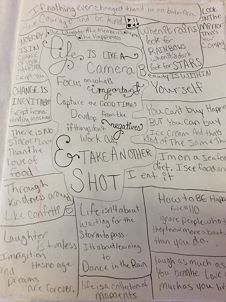 If nothing ever changed there'd be no butterflies
LIFE IS LIKE A
Camera
Focus on what's
important
Capture the GOOD TIMES
Develop from the
negatives
if things don't
Work Out
& TAKE ANOTHER
SHOT
When it rains
look for
RAINBOWS
When it's dark
look for STARS
BEAUTY IS WITHIN
Yourself
CHANGE IS
INEVITABLE
Except from a
vending machine
There is no
sincerer love
than the
love of
food
You can't buy Happiness
BUT You can buy
Ice Cream and that's
kind of The same Thing
I'm on a Seafood
diet, I see food and
I eat it
Through
kindness around
Like confetti
Laughter
is timeless
Imagination
has no age
and
Dreams
are forever
Life isn't about
waiting for the
Storm to pass
It's about learning
to
Dance in the Rain
life is a collection of
moments
How to BE Happy
ignore people who think
they know more about you
than you do.
laugh as much as
You breathe Love as
much as you live